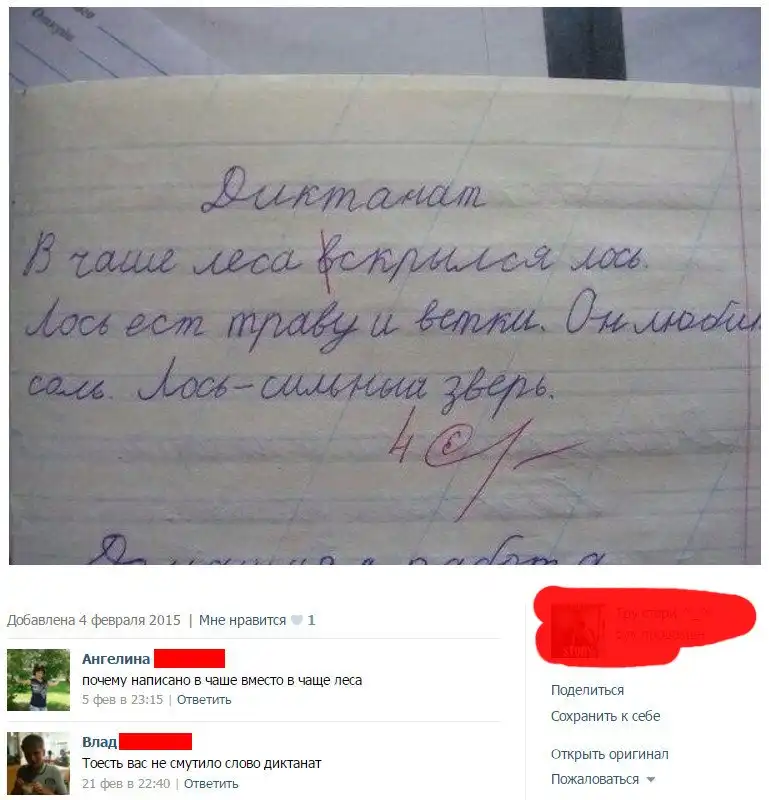 Диктанат
В чаше леса вскрылся лось.
Лось ест траву и ветки. Он любит
соль. Лось - сильный зверь.
4
Домашняя работа
Добавлена 4 февраля 2015 | Мне нравится 1
Ангелина
почему написано в чаше вместо в чаще леса
5 фев в 23:15 | Ответить
Влад
Тоесть вас не смутило слово диктанат
21 фев в 22:40 | Ответить
Поделиться
Сохранить к себе
Открыть оригинал
Пожаловаться